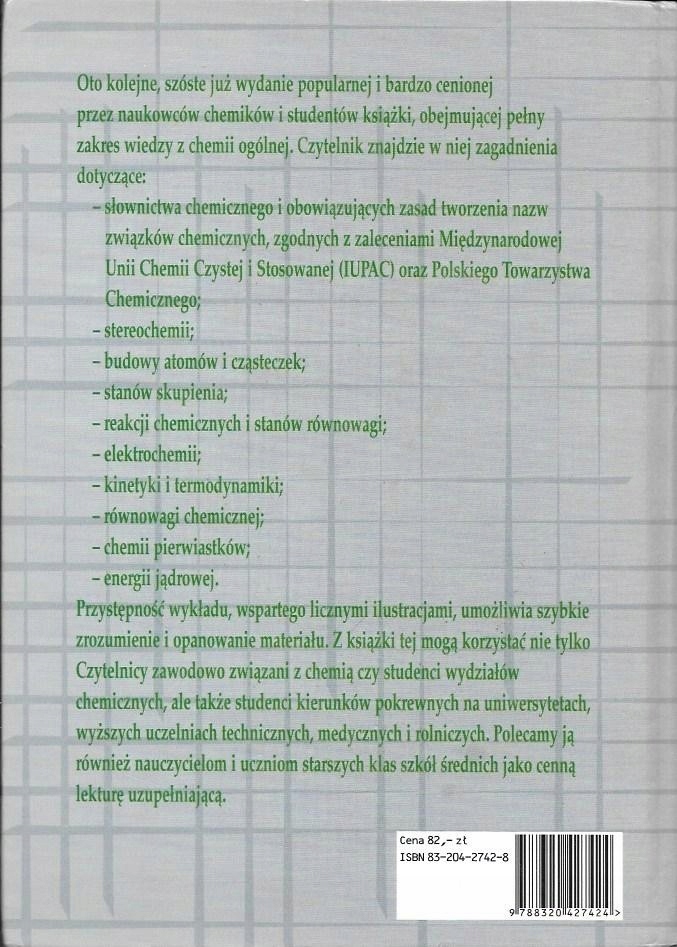 Oto kolejne, szóste już wydanie popularnej i bardzo cenionej
przez naukowców chemików i studentów książki, obejmującej pełny
zakres wiedzy z chemii ogólnej. Czytelnik znajdzie w niej zagadnienia
dotyczące:
– słownictwa chemicznego i obowiązujących zasad tworzenia nazw
związków chemicznych, zgodnych z zaleceniami Międzynarodowej
Unii Chemii Czystej i Stosowanej (IUPAC) oraz Polskiego Towarzystwa
Chemicznego;
– stereochemii;
– budowy atomów i cząsteczek;
– stanów skupienia;
– reakcji chemicznych i stanów równowagi;
– elektrochemii;
– kinetyki i termodynamiki;
– równowagi chemicznej;
– chemii pierwiastków;
– energii jądrowej.
Przystępność wykładu, wspartego licznymi ilustracjami, umożliwia szybkie
zrozumienie i opanowanie materiału. Z książki tej mogą korzystać nie tylko
Czytelnicy zawodowo związani z chemią czy studenci wydziałów
chemicznych, ale także studenci kierunków pokrewnych na uniwersytetach,
wyższych uczelniach technicznych, medycznych i rolniczych. Polecamy ją
również nauczycielom i uczniom starszych klas szkół średnich jako cenną
lekturę uzupełniającą.
Cena 82,– zł
ISBN 83-204-2742-8
9 788320 427424 >